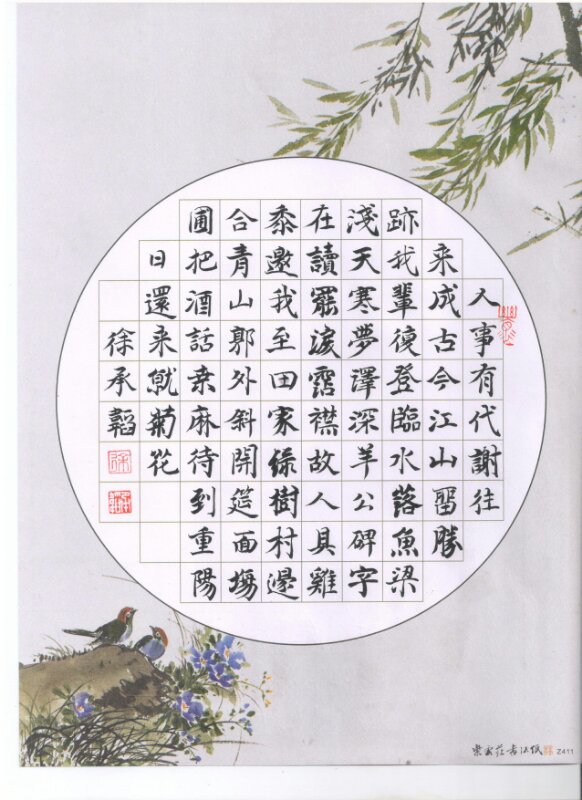 人事有代謝往
来成古今江山畱勝
跡我輩復登臨水落魚梁
淺天寒夢澤深羊公碑字
在讀罷淚霑襟故人具雞
黍邀我至田家綠樹村邊
合青山郭外斜開筵面塲
圃把酒話桒麻待到重陽
日還来就菊花
徐承韜
Z411